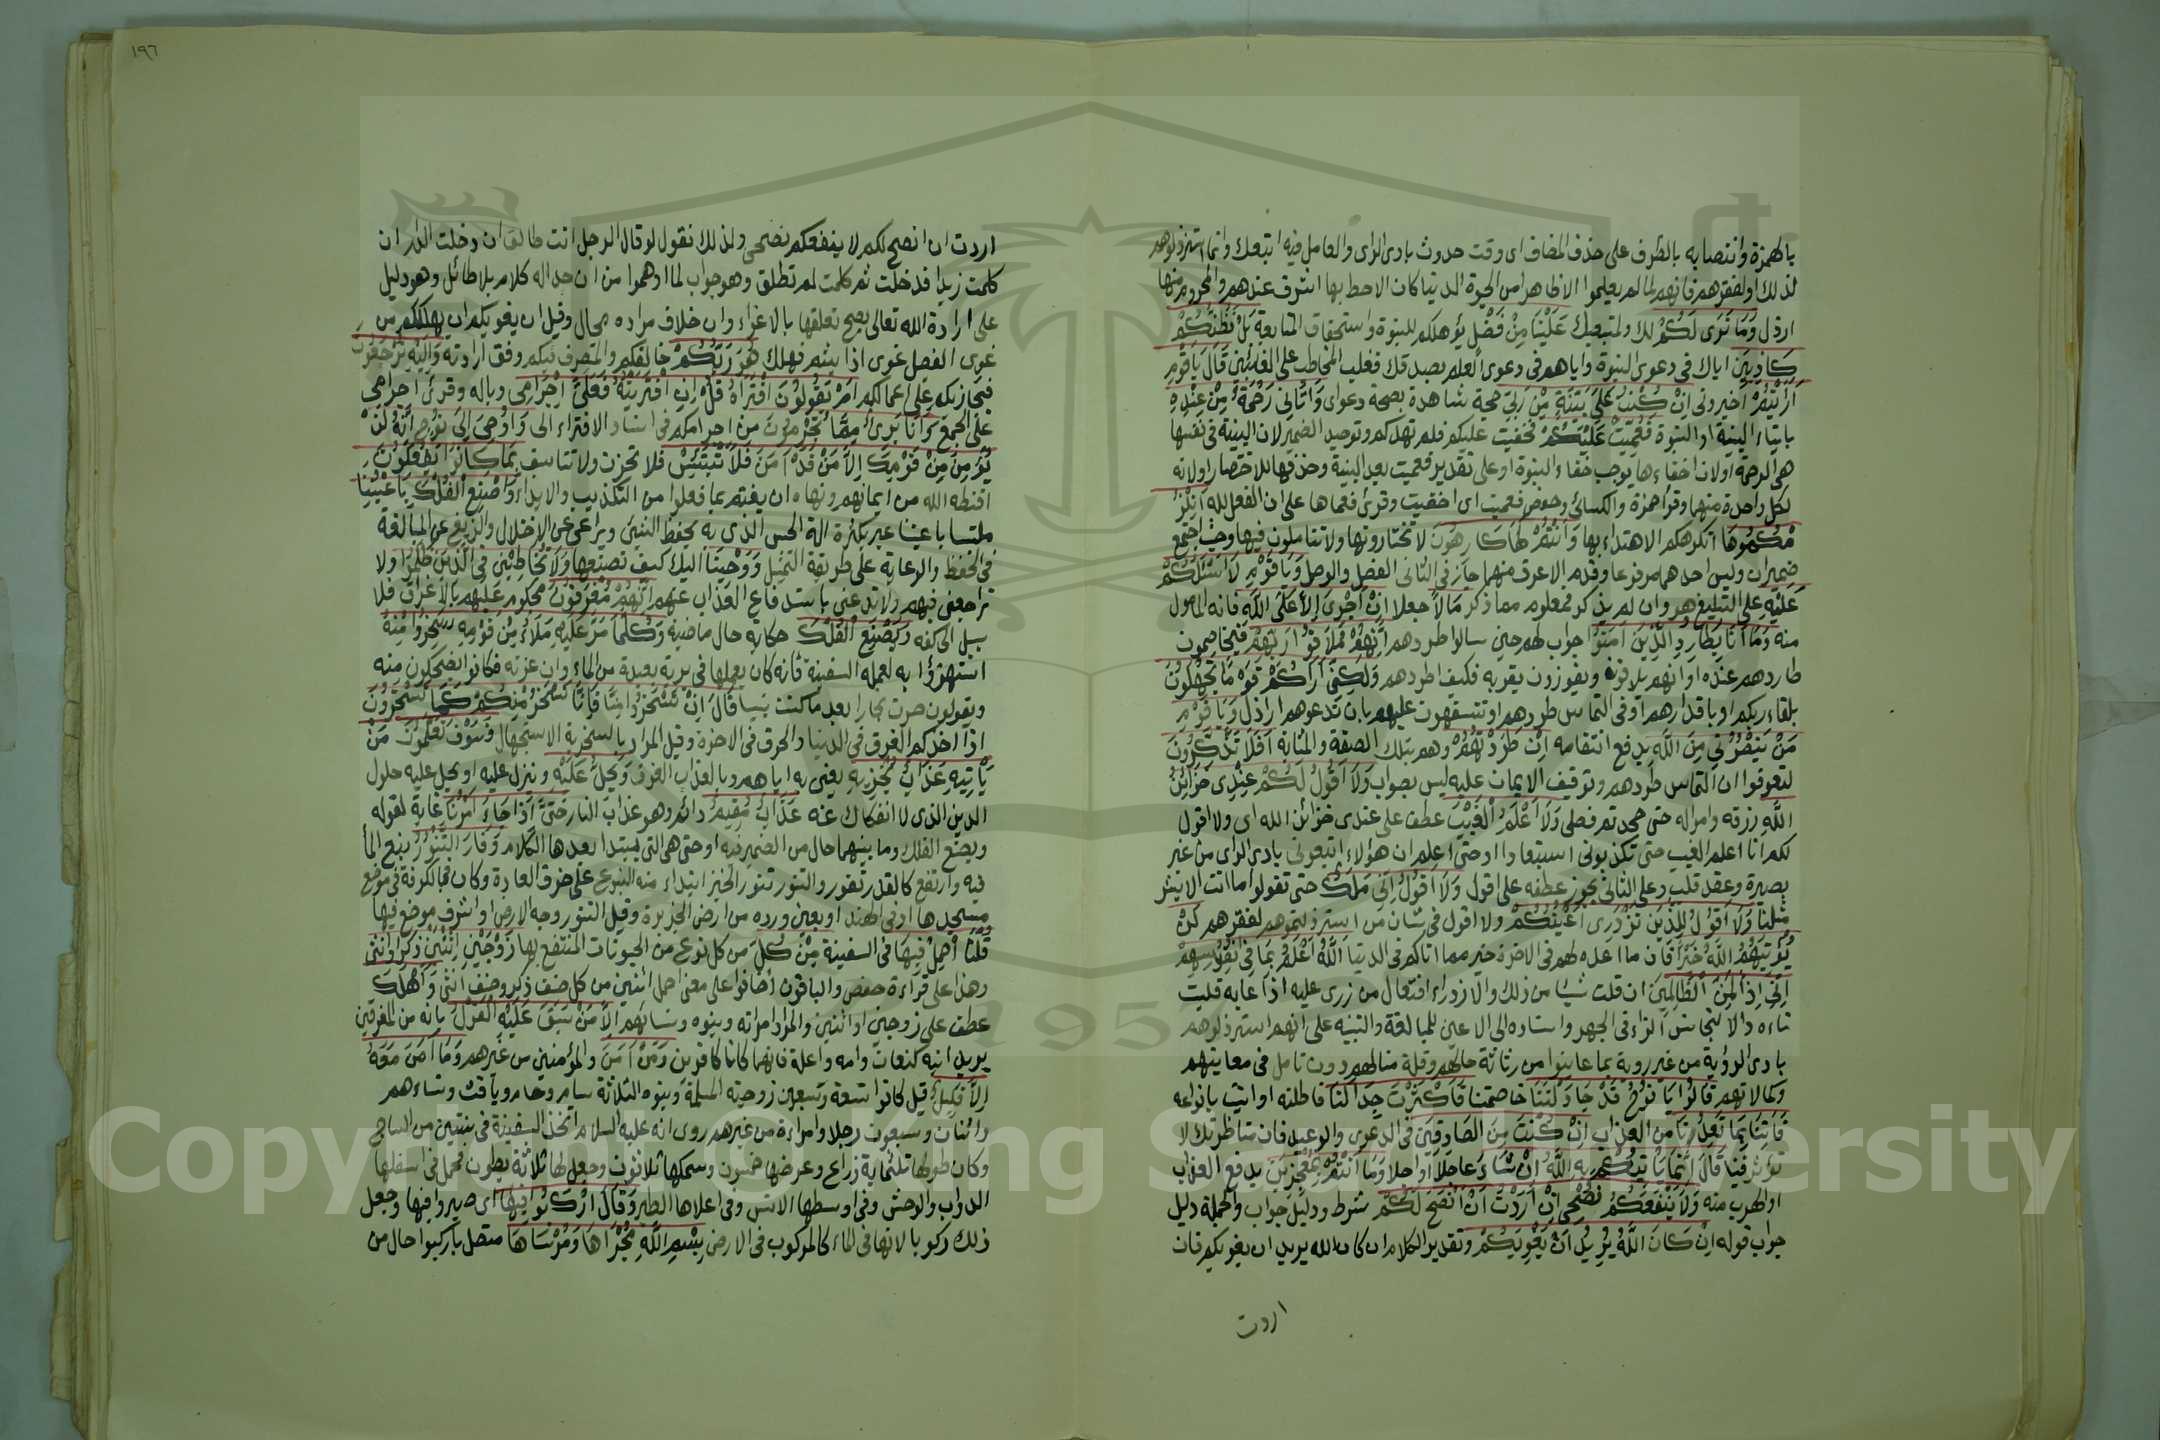 ١٩٦
بالهمزة وانتصابه بالظرف على حذف المضاف اى وقت حدوث بادى الراى والعامل فيه اتبعك وانما استرذلوهم
لذلك او لفقرهم فانهم لما لم يعلموا الا ظاهرا من الحيوة الدنيا كان الاحظ بها اشرف عندهم والمحروم منها
ارذل وَمَا نَرَى لَكُمْ لك ولمتبعيك عَلَيْنَا مِنْ فَضْلٍ يؤهلكم للنبوة واستحقاق المتابعة بَلْ نَظُنُّكُمْ
كَاذِبِيَن اياك فى دعوى النبوة واياهم فى دعوى العلم بصدقك فغلب المخاطب على الغائبين قَالَ يَاقَوْمِ
اَرَاَيْتُمْ اخبرونى اِنْ كُنْتُ عَلَى بَيِّنَةٍ مِنْ رَبِّى حجة شاهدة بصحة دعواى وَآتَانِى رَحْمَةً مِنْ عِنْدِهِ
بايتاء البينة او النبوة فَعُمِّيَتْ عَلَيْكُمْ فخفيت عليكم فلم تهدكم وتوحيد الضمير لان البينة فى نفسها
هى الرحمة او لان خفاءها يوجب خفاء النبوة او على تقدير فعميت بعد البينة وحذفها للاختصار او لانه
لكل واحدة منهما وقرا حمزة والكسائى وحفص فعميت اى اخفيت وقرئ فعماها على ان الفعل لله اَنُلْزِ
مُكُمُوهَا انكرهكم الاهتداء بها وَاَنْتُمْ لَهَا كَارِهُونَ لا تختارونها ولا تتاملون فيها وحيث اجتمع
ضميران وليس احدهما مرفوعا وقدم الاعرف منهما جاز فى الثانى الفصل والوصل وَيَا قَوْمِ لَا اَسْئَلُكُمْ
عَلَيْهِ على التبليغ هو وان لم يذكر فمعلوم مما ذكر مَالاً جعلا اِنْ اَجْرِىَ اِلاَّ عَلَى اللهِ فانه المامول
منه وَمَا اَنَا بِطَارِدِ الَّذِينَ آمَنُوا جواب لهم حين سالوا طردهم اِنَّهُمْ مُلاَقُوا رَبِّهِمْ فيخاصمون
طاردهم عنده او انهم يلاقونه ويفوزون بقربه فكيف اطردهم وَلَكِنِّى اَرَاكُمْ قَوْمًا تَجْهَلُونَ
بلقاء ربكم او باقدارهم او فى التماس طردهم او تتسفهون عليهم بان تدعوهم اراذل وَيَا قَوْمِ
مَنْ يَنْصُرُنِى مِنَ اللهِ بدفع انتقامه اِنْ طَرَدْتُهُمْ وهم بتلك الصفة والمثابة اَفَلَا تَذَكَّرُونَ
لتعرفوا ان التماس طردهم وتوقيف الايمان عليه ليس بصواب وَلاَ اَقُولُ لَكُمْ عِنْدِى خَزَائِنُ
اللهِ رزقه وامواله حتى جحدتم فضلى وَلَا اَعْلَمُ الْغَيْبَ عطف على عندى خزائن الله اى ولا اقول
لكم انا اعلم الغيب حتى تكذبونى استبعادا او حتى اعلم ان هؤلاء اتبعونى بادى الراى من غير
بصيرة وعقد قلب وعلى الثانى يجوز عطفه على اقول وَلَا اَقُولُ اِنِّى مَلَكٌ حتى تقولوا ما انت الا بشر
مثلنا وَلَا اَقُولُ لِلَّذِينَ تَزْدَرِى اَعْيُنُكُمْ ولا اقول فى شان من استرذلتموهم لفقرهم لَنْ
يُؤْتِيَهُمُ اللهُ خَيْرًا فان ما اعده لهم فى الاخرة خير مما اتاكم فى الدنيا اَللهُ اَعْلَمُ بِمَا فِى نُفُوسِهِمْ
اِنِّى اِذًا لَمِنَ الظَّالِمِيَن ان قلت شيئا من ذلك والازدراء افتعال من زرى عليه اذا عابه قلبت
تاءه دالا لتجانس الزاء فى الجهر واسناده الى الاعين للمبالغة والتنبيه على انهم استرذلوهم
بادى الرؤية من غير روية بما عاينوا من رثاثة حالهم وقلة منالهم دون تامل فى معانيهم
وكمالاتهم قَالُوا يَا نُوحُ قَدْ جَادَلْتَنَا خاصمتنا فَاَكْثَرْتَ جِدَالَنَا فاطلته او اتيت بانواعه
فَاْتِنَا بِمَا تَعِدُنَا من العذاب اِنْ كُنْتَ مِنَ الصَّادِقِيَن فى الدعوى والوعيد فان مناظرتك لا
تؤثر فينا قَالَ اِنَّمَا يَاْتِيكُمْ بِهِ اللهُ اِنْ شَاءَ عاجلا او اجلا وَمَا اَنْتُمْ بِمُعْجِزِيَن بدفع العذاب
او الهرب منه وَلَا يَنْفَعُكُمْ نُصْحِى اِنْ اَرَدْتُ اَنْ اَنْصَحَ لَكُمْ شرط ودليل جواب والجملة دليل
جواب قوله اِنْ كَانَ اللهُ يُرِيدُ اَنْ يُغْوِيَكُمْ وتقدير الكلام ان كان الله يريد ان يغويكم فان
اردت
اردت ان انصح لكم لا ينفعكم نصحى ولذلك نقول لو قال الرجل انت طالق ان دخلت الدار ان
كلمت زيدا فدخلت ثم كلمت لم تطلق وهو جواب لما اوهموا من ان جداله كلام بلا طائل وهو دليل
على ارادة الله تعالى يصح تعلقها بالاغواء وان خلاف مراده محال وقيل ان يغويكم ان يهلككم من
غوى الفصيل غوى اذا بشم فهلك هُوَ رَبُّكُمْ خالقكم والمتصرف فيكم وفق ارادته وَاِلَيْهِ تُرْجَعُونَ
فيجازيكم على اعمالكم اَمْ يَقُولُونَ افْتَرَاهُ قُلْ اِنِ افْتَرَيْتُهُ فَعَلَىَّ اِجْرَامِى وباله وقرئ اجرامى
على الجمع وَاَنَا بَرِىءٌ مِمَّا تُجْرِمُونَ من اجرامكم فى اسناد الافتراء الى وَاُوحِىَ اِلَى نُوحٍ اَنَّهُ لَنْ
يُؤْمِنَ مِنْ قَوْمِكَ اِلاَّ مَنْ قَدْ آمَنَ فَلاَ تَبْتَئِسْ فلا تحزن ولا تتاسف بِمَا كَانُوا يَفْعَلُونَ
اقنطه الله من ايمانهم ونهاه ان يغتم بما فعلوا من التكذيب والايذاء وَاصْنَعِ الْفُلْكَ بِاَعْيُنِنَا
ملتبسا باعيننا عبر بكثرة الة الحس الذى به يحفظ الشئ ويراعى عن الاختلال والزيغ عن المبالغة
فى الحفظ والرعاية على طريقة التمثيل وَوَحْيِنَا اليك كيف تصنعها وَلَا تُخَاطِبْنِى فِى الَّذِينَ ظَلَمُوا ولا
تراجعنى فيهم ولا تدعنى باستدفاع العذاب عنهم اِنَّهُمْ مُغْرَقُونَ محكوم عليهم بالاغراق فلا
سبيل الى كفه وَيَصْنَعُ الْفُلْكَ حكاية حال ماضية وَكُلَّمَا مَرَّ عَلَيْهِ مَلَاٌ مِنْ قَوْمِهِ سَخِرُوا مِنْهُ
استهزؤا به لعمله السفينة فانه كان يعملها فى برية بعيدة من الماء اوان عزته فكانوا يضحكون منه
ويقولون صرت نجارا بعد ما كنت نبيا قَالَ اِنْ تَسْخَرُوا مِنَّا فَاِنَّا نَسْخَرُ مِنْكُمْ كَمَا تَسْخَرُونَ
اذا اخذكم الغرق فى الدنيا والحرق فى الاخرة وقيل المراد بالسخرية الاستجهال فَسَوْفَ تَعْلَمُونَ مَنْ
يَاْتِيهِ عَذَابٌ يُخْزِيهِ يعنى به اياهم وبالعذاب الغرق وَيَحِلُّ عَلَيْهِ وينزل عليه او يحل عليه حلول
الدين الذى لا انفكاك عنه عَذَابٌ مُقِيمٌ دائم وهو عذاب النار حَتَّى اِذَا جَاءَ اَمْرُنَا غاية لقوله
ويصنع الفلك وما بينهما حال من الضمير فيه او حتى هى التى يبتدا بعدها الكلام وَفَارَ التَّنُّورُ نبع الماء
فيه وارتفع كالقدر تفور والتنور تنور الخبز ابتداء منه النبوع على خرق العادة وكان فى الكوفة فى موضع
مسجدها او فى الهند او بعين وردة من ارض الجزيرة وقيل التنور وجه الارض او اشرف موضع فيها
قُلْنَا احْمِلْ فِيهَا فى السفينة مِنْ كُلٍّ من كل نوع من الحيوانات المنتفع بها زَوْجَيْنِ اثْنَيْنِ ذكرا وانثى
وهذا على قراءة حفص والباقون اضافوا على معنى احمل اثنين من كل صنف ذكر وصنف انثى وَاَهْلَكَ
عطف على زوجين او اثنين والمراد امراته وبنوه ونساؤهم اِلاَّ مَنْ سَبَقَ عَلَيْهِ الْقَوْلُ بانه من المغرقين
يريد ابنه كنعان وامه واعلة فانهما كانا كافرين وَمَنْ آمَنَ والمؤمنين من غيرهم وَمَا آمَنَ مَعَهُ
اِلاَّ قَلِيلٌ قيل كانوا تسعة وتسعين زوجته المسلمة وبنوه الثلاثة سام وحام ويافث ونساءهم
واثنان وسبعون رجلا وامراة من غيرهم روى انه عليه السلام اتخذ السفينة فى سنتين من الساج
وكان طولها ثلثماية ذراع وعرضها خمسون وسمكها ثلاثون وجعل لها ثلاثة بطون فحمل فى اسفلها
الدواب والوحش وفى اوسطها الانس وفى اعلاها الطير وَقَالَ ارْكَبُوا فِيهَا اى صيروا فيها وجعل
ذلك ركوبا لانها فى الماء كالمركوب فى الارض بِسْمِ اللهِ مُجْرَاهَا وَمُرْسَاهَا متصل باركبوا حال من
1957
Copyright © King Saud University